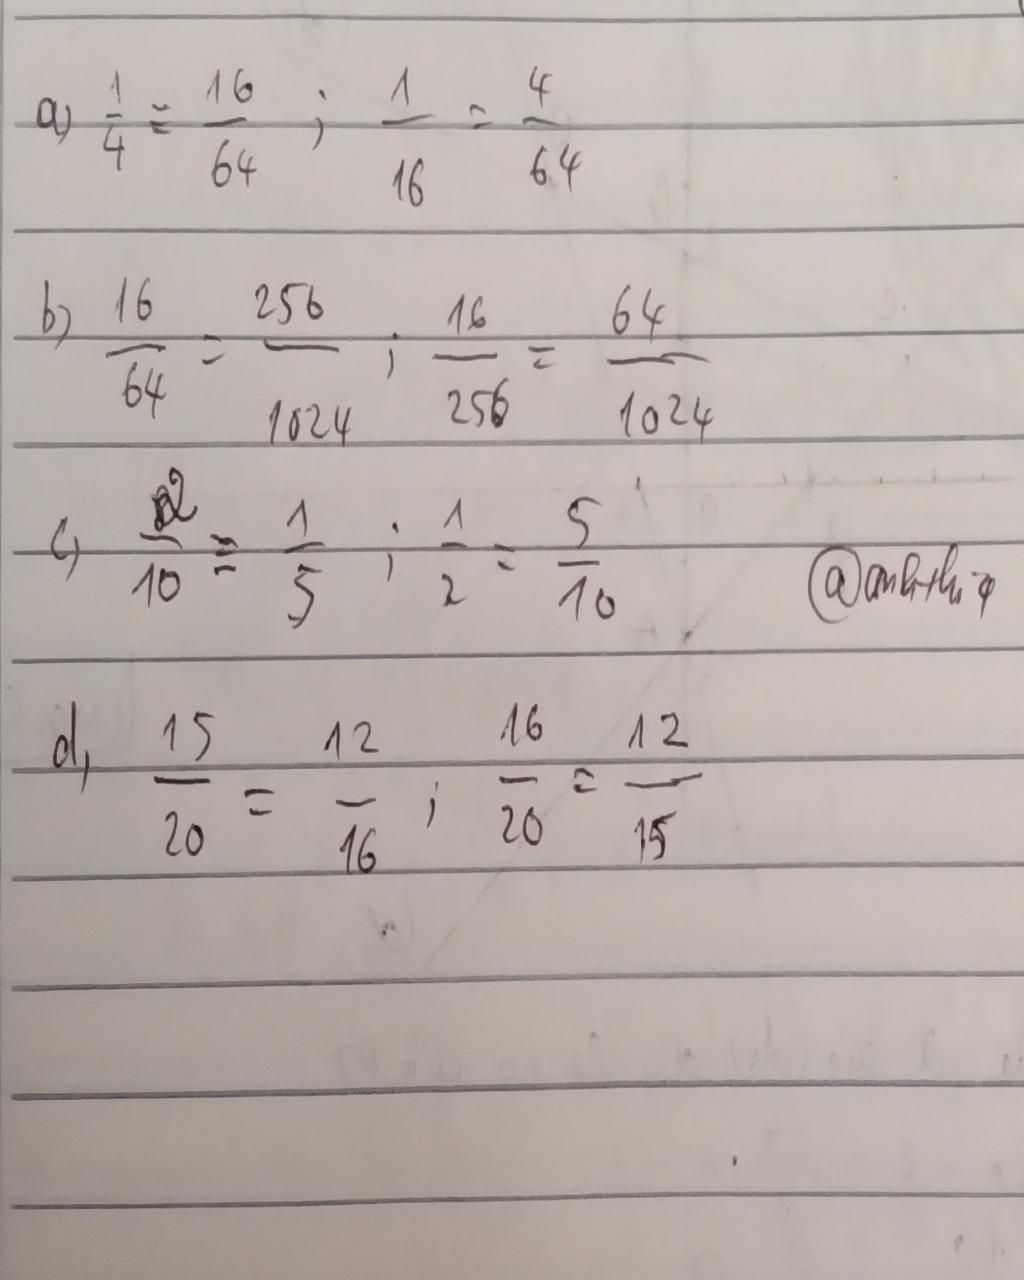 a) 1/4 = 16/64 ; 1/16 = 4/64
b) 16/64 = 256/1024 ; 16/256 = 64/1024
c) 2/10 = 1/5 ; 1/2 = 5/10
d, 15/20 = 12/16 ; 16/20 = 12/15